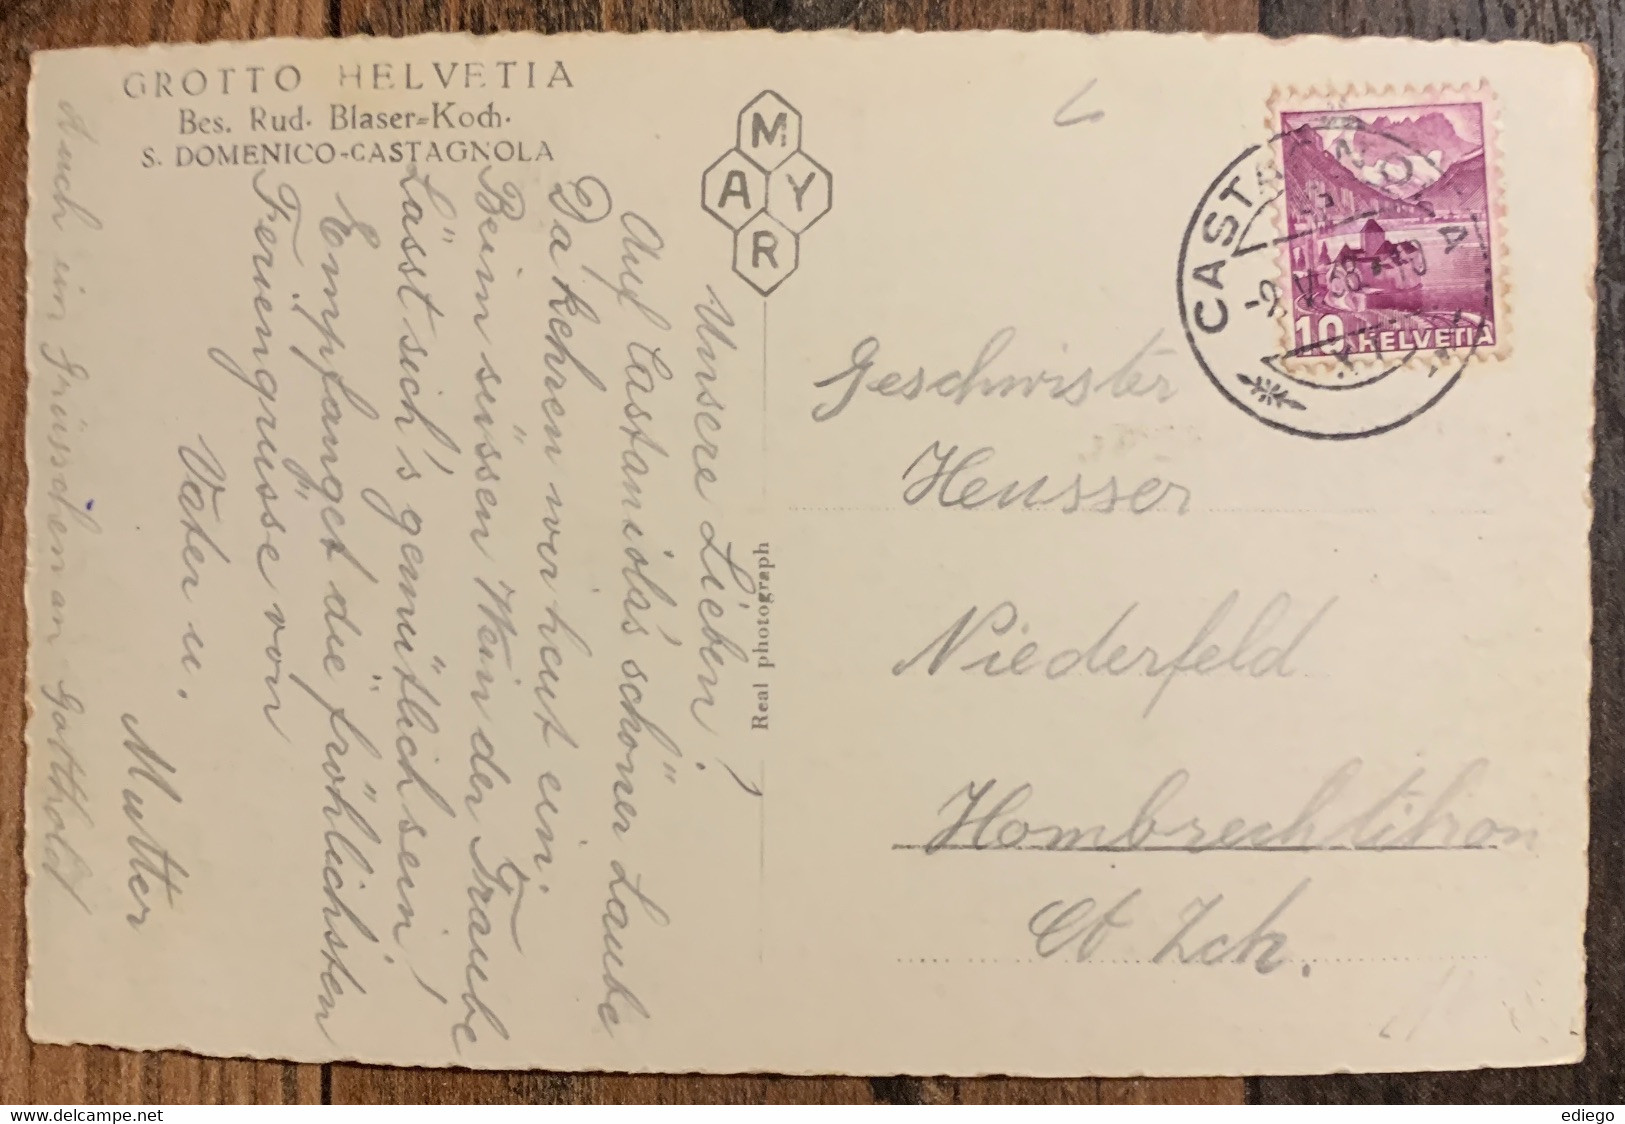 GROTTO HELVETIA
Bes. Rud. Blaser=Koch.
S. DOMENICO-CASTAGNOLA
MAYR
Real photograph
Unsere Lieben!
Auf Castaniola's schöner Laube
Da kehren wir heut ein.
Beim süssen Wein der Traube
Lässt sich's gemütlich sein!
Empfanget die fröhlichsten
Feriengrüsse von
Vater u.
Mutter
Auch ein Grüsschen an Gotthold
CASTAGNOLA
-9. V. 38 - 10
10 HELVETIA
Geschwister
Heusser
Niederfeld
Hombrechtikon
Ct Zch.
delcampe.net
ediego